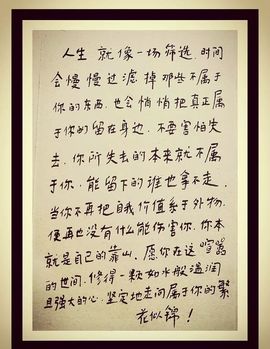 人生 就像一场筛选,时间
会慢慢过滤掉那些不属于
你的东西.也会悄悄把真正属
于你的留在身边.不要害怕失
去.你所失去的本来就不属
于你.能留下的谁也拿不走.
当你不再把自我价值系于外物.
便再也没有什么能伤害你.你本
就是自己的靠山.愿你在这喧嚣
的世间.修得一颗如水般温润
且强大的心.坚定地走向属于你的繁
花似锦!